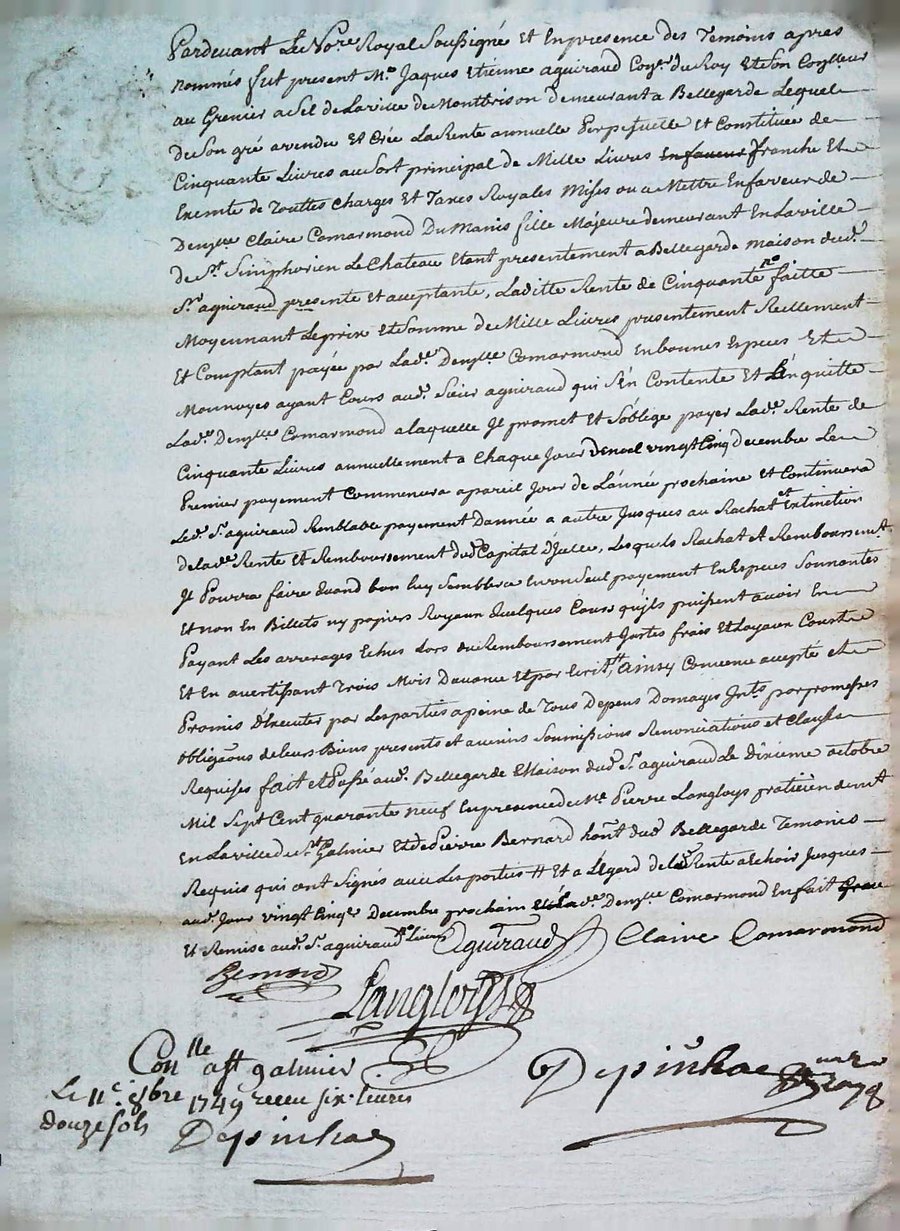 Pardevant Le No.re Royal Soussigné Et En presence des Temoins apres
nommés fut present M.e Jaques Etienne aguiraud Con.er du Roy Et Son Con.lleur
au Grenier a Sel de La ville de Montbrison demeurant a Bellegarde Lequel
de Son gré a vendu Et Crée La Rente annuelle Perpetuelle Et Constituée de
Cinquante Livres au Sort principal de Mille Livres En faveur franche Et
Exemte de Touttes Charges Et Taxes Royales Mises ou a Mettre En faveur de
Dem.lle Claire Comarmond Du Manis fille Majeure demeurant En La ville
de S.t Simphorien Le Chateau Etant presentement a Bellegarde maison dud.
S.r aguiraud presente Et aceptante, Laditte Rente de Cinquante faitte
Moyennant Le prix Et Somme de Mille Livres presentement Reellement
Et Comptant payée par Lad.e Dem.lle Comarmond En bonnes Especes Et
Monnoyes ayant Cours aud. Sieur aguiraud qui S'en Contente Et L'en quitte
Lad.e Dem.lle Comarmond a laquelle Jl promet Et S'oblege payer Lad.e Rente de
Cinquante Livres annuellement a Chaque Jour de noel vingt Cinq decembre Le
Premier payement Commencera a pareil Jour de L'année prochaine Et Continuera
Led. S.r aguiraud Semblable payement d'année a autre Jusques au Rachat et Extinction
de lad.e Rente Et Remboursement dud. Capital D'jcelle, Lesquels Rachat Et Remboursem.t
Jl Pourra faire quand bon luy Semblera En un Seul payement En Especes Sonnantes
Et non En Billets ny papiers Royaux quelques Cours qu'jls puissent avoir En
Payant Les arrerages Echus Lors du Remboursement Justes frais Et Loyaux Couste
Et En avertissant Trois Mois D'avance Et par Ecrit, ainsy Convenu accepté et
Promis d'Executer par Les parties a peine de Tous Depens Domages Jnts par promesses
obliga͠ons de leurs Biens presents et avenirs Soumissions Renonciations et Clauses
Requises fait et Passé aud. Bellegarde Maison dud. S.r aguiraud Le Dixieme octobre
Mil Sept Cent quarante neuf En presence de M.e Pierre Langloys pratitien demt
En La ville de S.t Galmier Et de Pierre Bernard ha͠nt dud. Bellegarde Temoins
Requis qui ont Signés avec Les parties # Et a L'egard de lad. Rente a Echoir Jusques
aud. Jour vingt Cinq.e Decembre prochain Lad.e Dem.lle Comarmond En fait
Et Remise aud. S.r aguiraud
Aguiraud Claire Comarmond
Bernard
Langloys
Con.lle a St galmier
Depinhac
Le 11.e 8bre 1749 receu six livres
douze sols
Depinhac